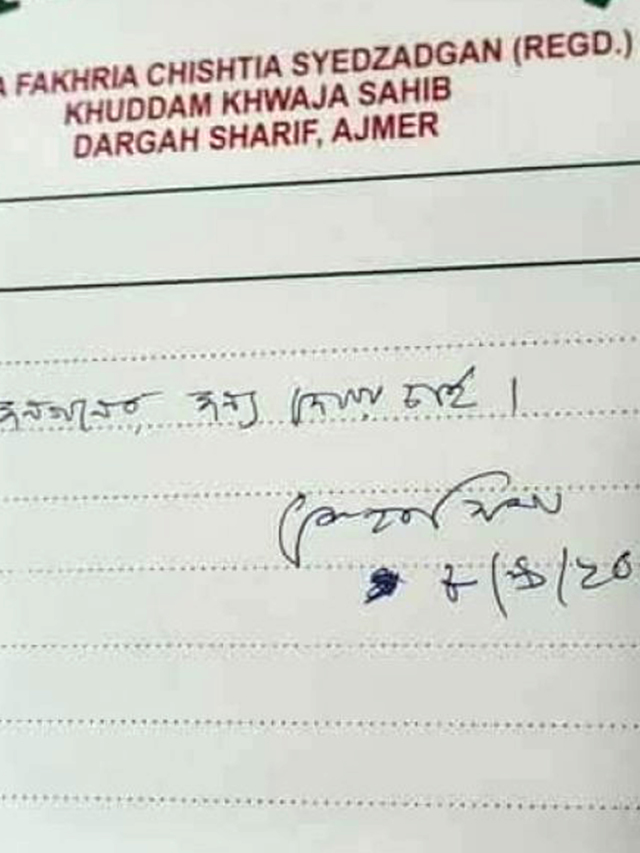 A FAKHRIA CHISHTIA SYEDZADGAN (REGD.)
KHUDDAM KHWAJA SAHIB
DARGAH SHARIF, AJMER
জনগনের জন্য দোয়া চাই ।
৮/৯/২০